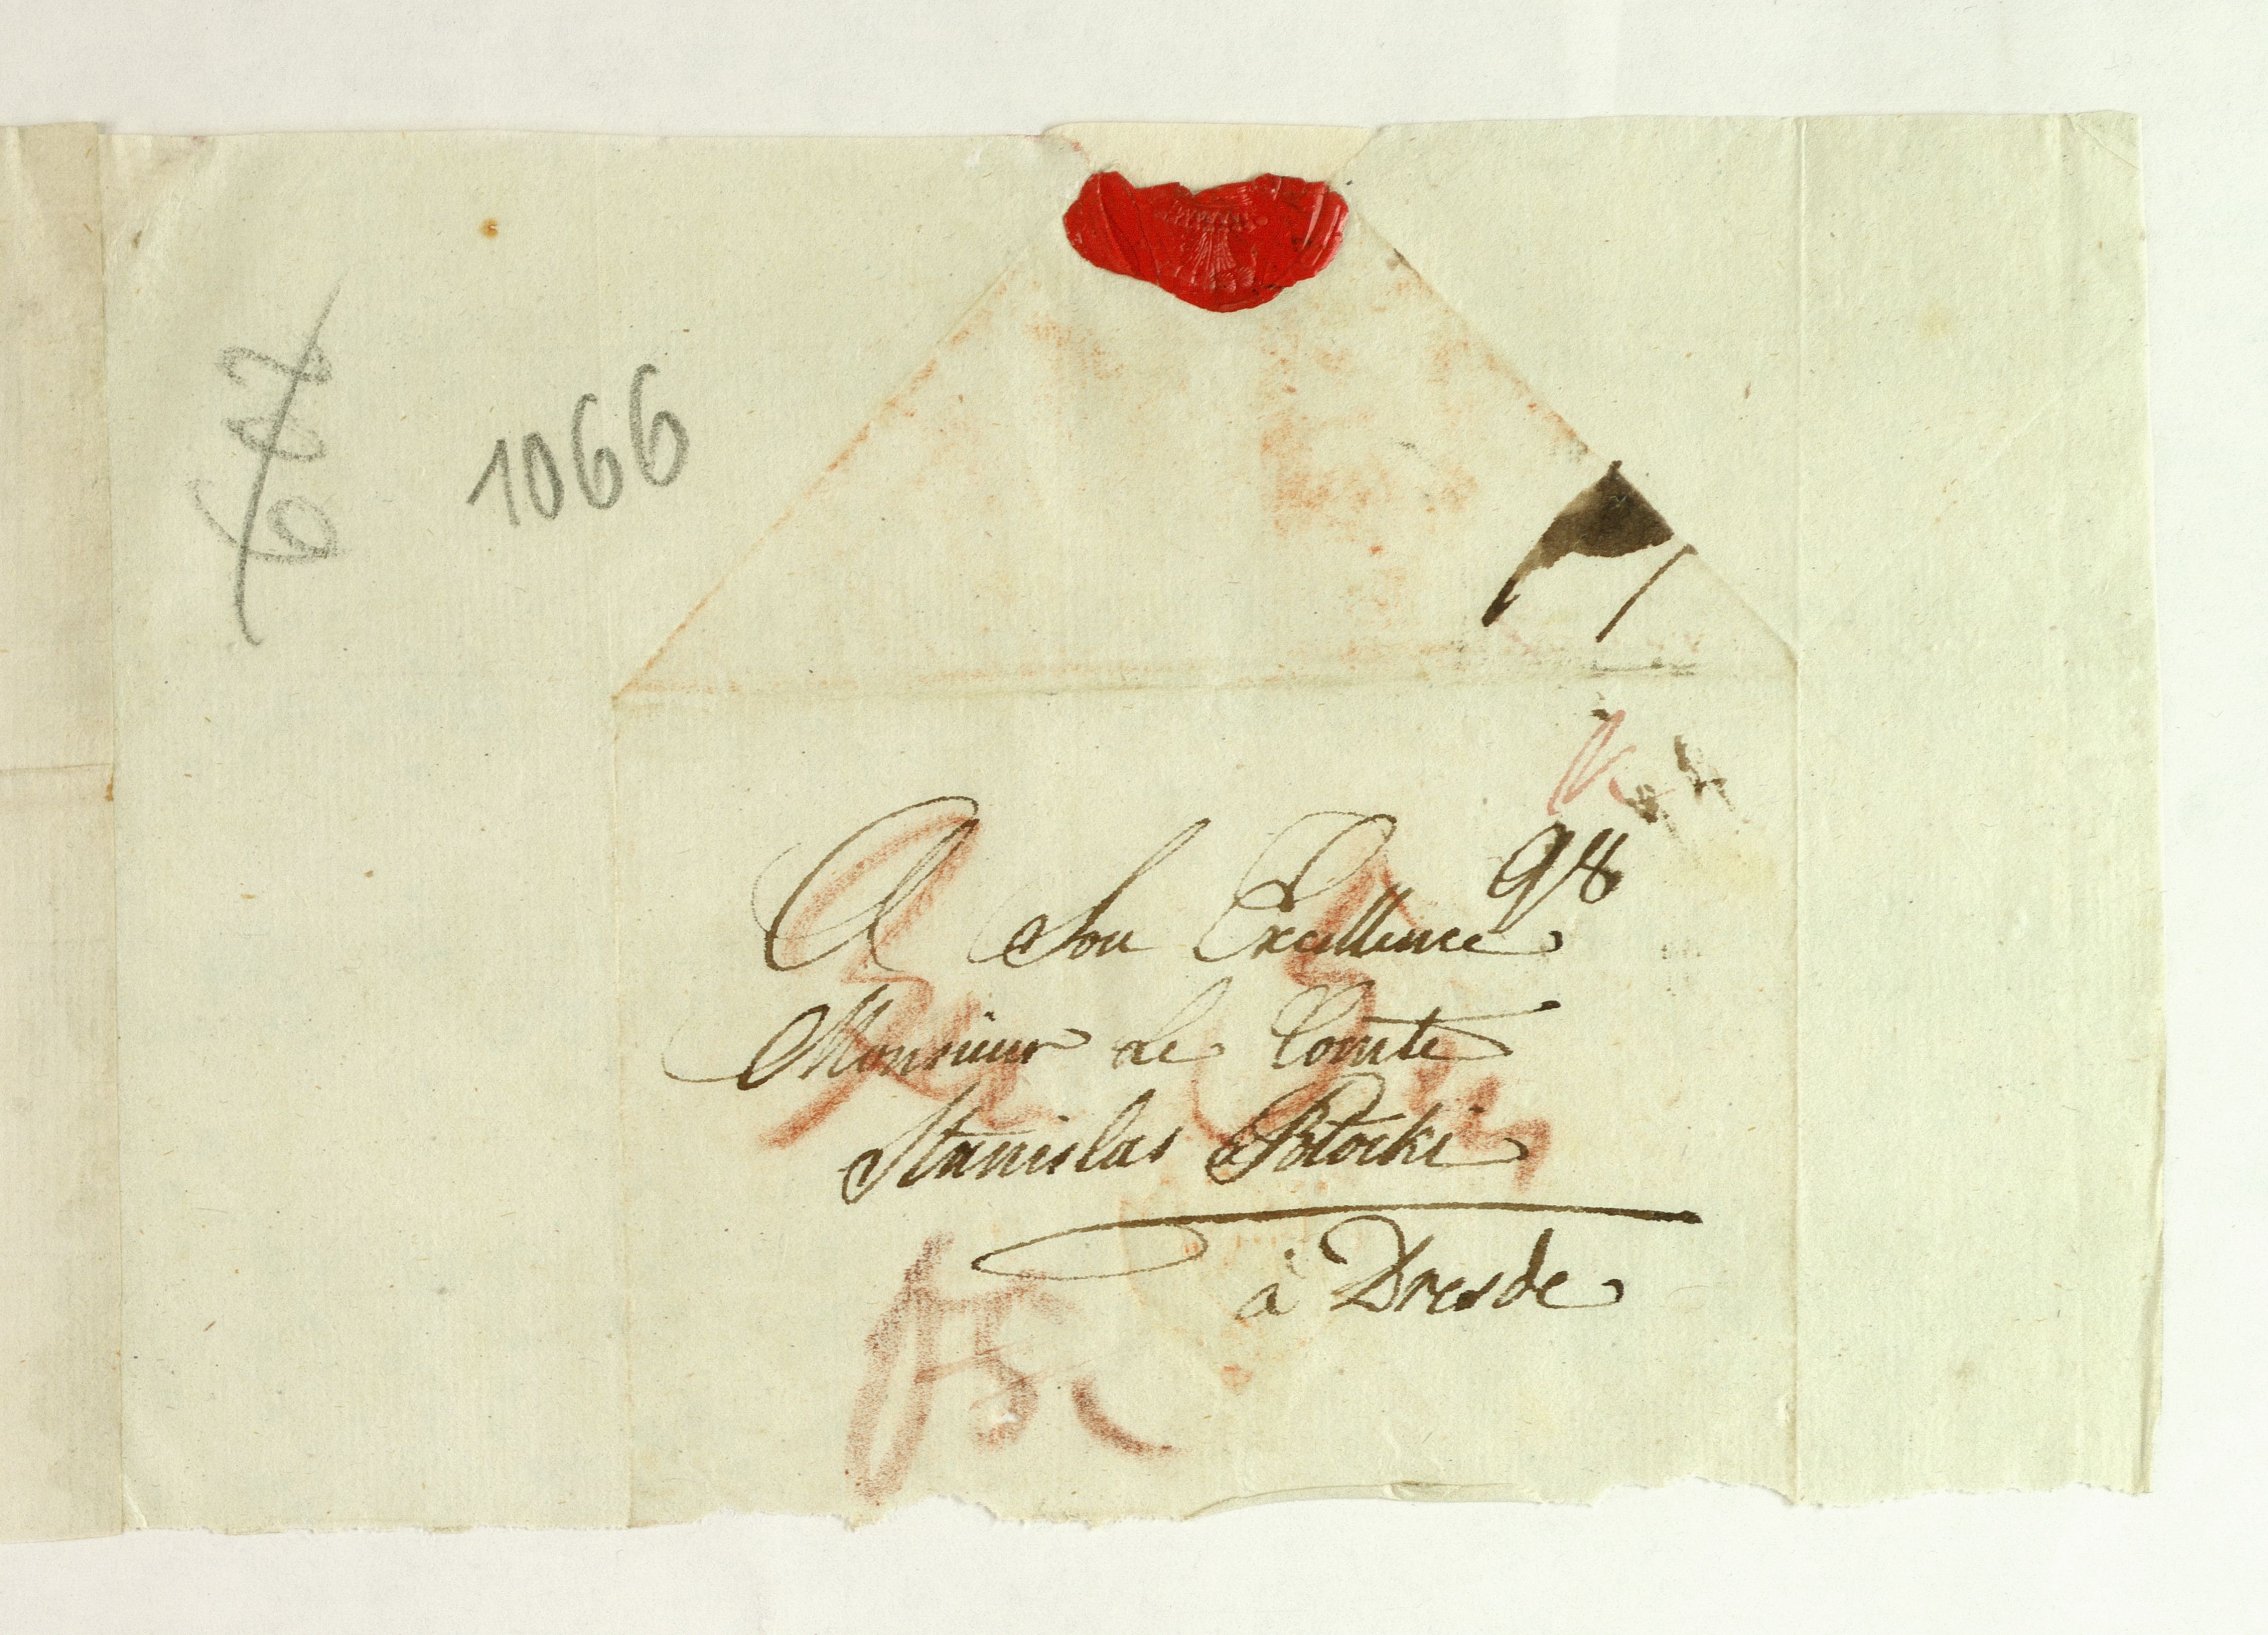 1066
98
A Son Excellence
Monsieur le Comte
Stanislas Potocki
à Dresde